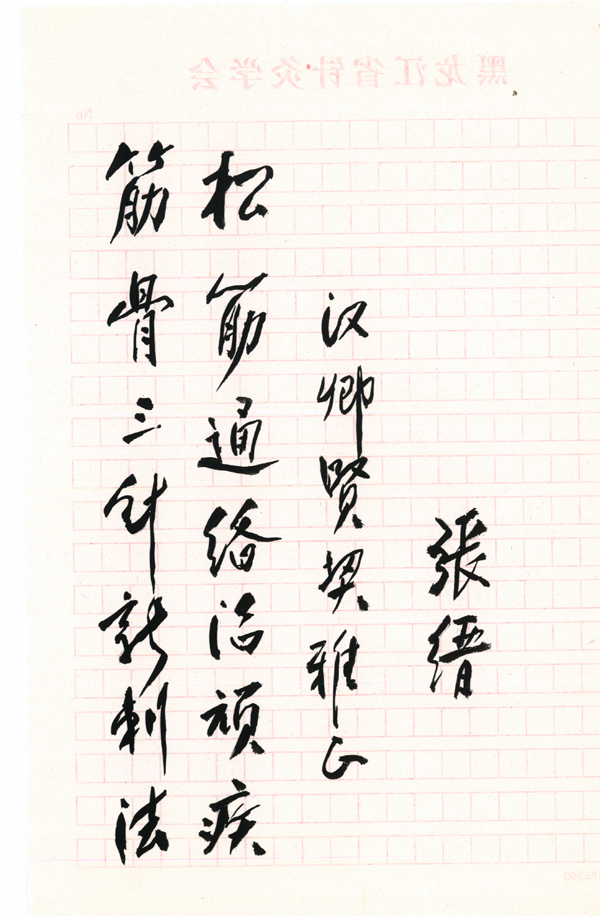 黑龙江省针灸学会
No
筋骨三针新刺法
松筋通络治顽疾
汉卿賢契雅正
張缙